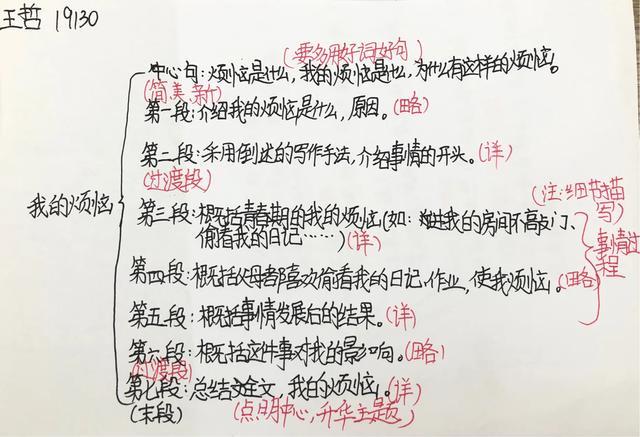 王哲 19130
(要多用好词好句)
中心句:烦恼是什么,我的烦恼是什么,为什么有这样的烦恼。
(简、美、新)
第一段:介绍我的烦恼是什么,原因。(略)
第二段:采用倒述的写作手法,介绍事情的开头。(详)
(过渡段)
我的烦恼
第三段:概括青春期的我的烦恼(如:进我的房间不敲门、
偷看我的日记……)(详)
(注:细节描写)
事情过程
第四段:概括父母都喜欢偷看我的日记、作业,使我烦恼。(略)
第五段:概括事情发展后的结果。(详)
第六段:概括这件事对我的影响。(略)
(过渡段)
第七段:总结文全文,我的烦恼。(详)
(末段)
(点明中心,升华主题)